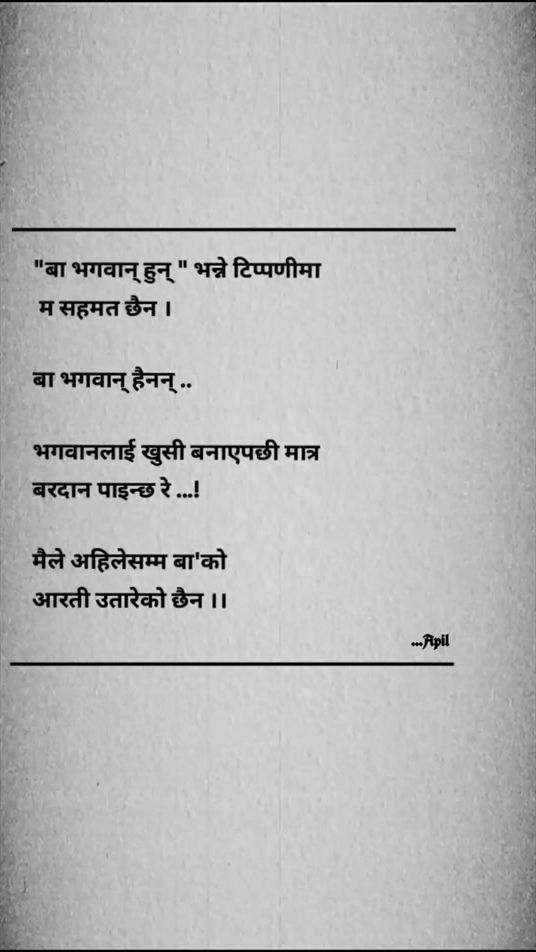 "बा भगवान् हुन् " भन्ने टिप्पणीमा
म सहमत छैन ।
बा भगवान् हैनन् ..
भगवानलाई खुसी बनाएपछी मात्र
बरदान पाइन्छ रे ...!
मैले अहिलेसम्म बा'को
आरती उतारेको छैन ।।
...Apil